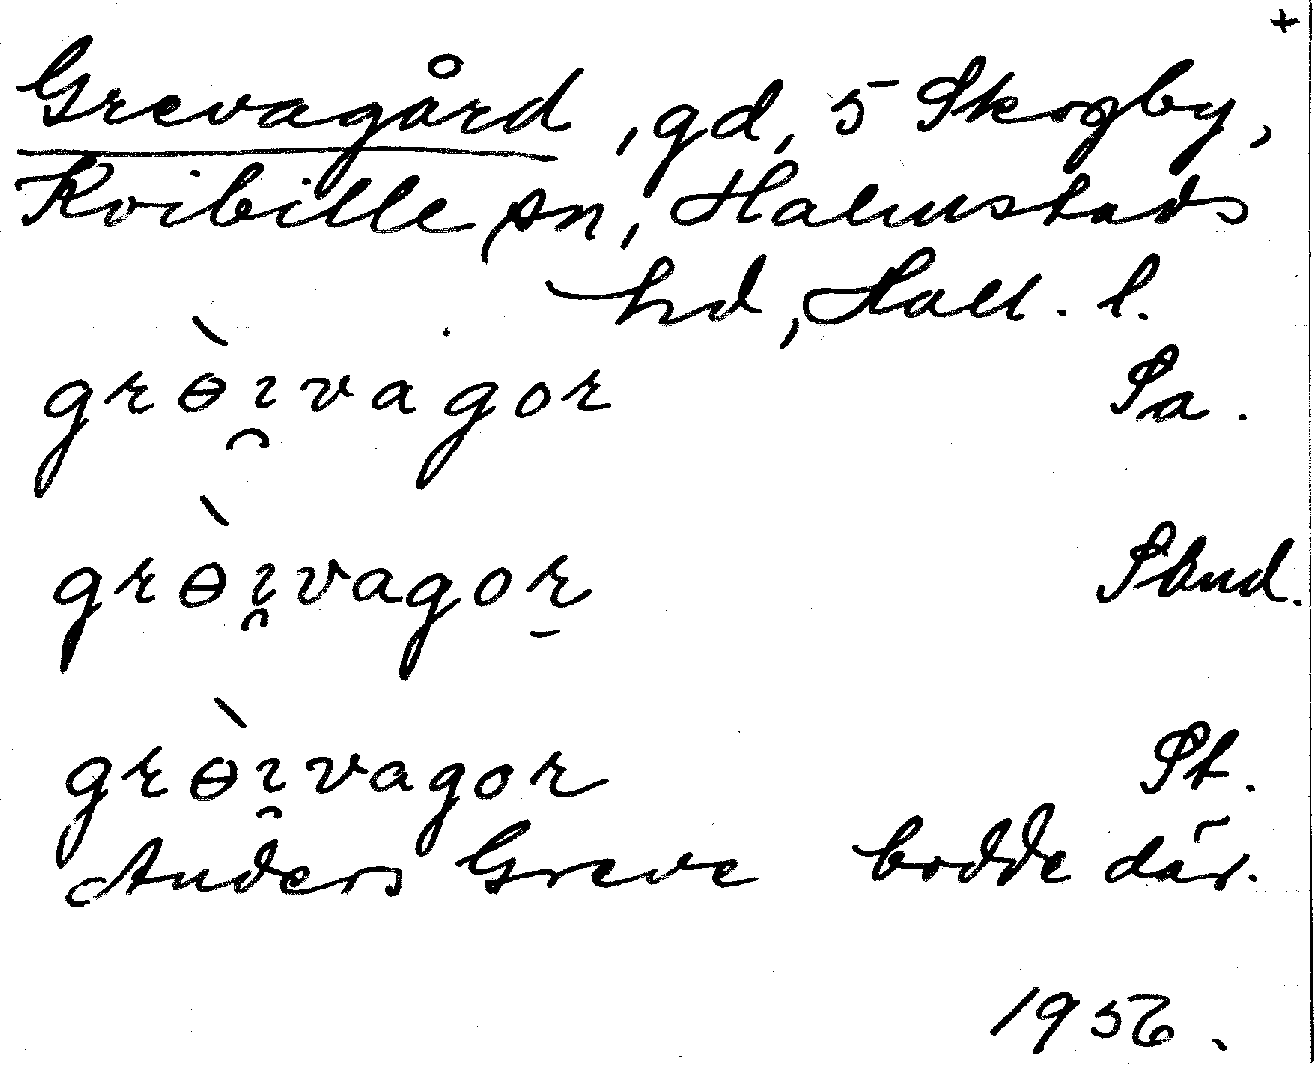 +
Grevagård, gd, 5 Skogby,
Kvibille sn, Halmstads
hd, Hall. l.
grɵ̀ı̯vagor Sa.
grɵ̀ı̯vagor̠
grɵ̀ı̯vagor St.
Anders Greve bodde där.
1956.